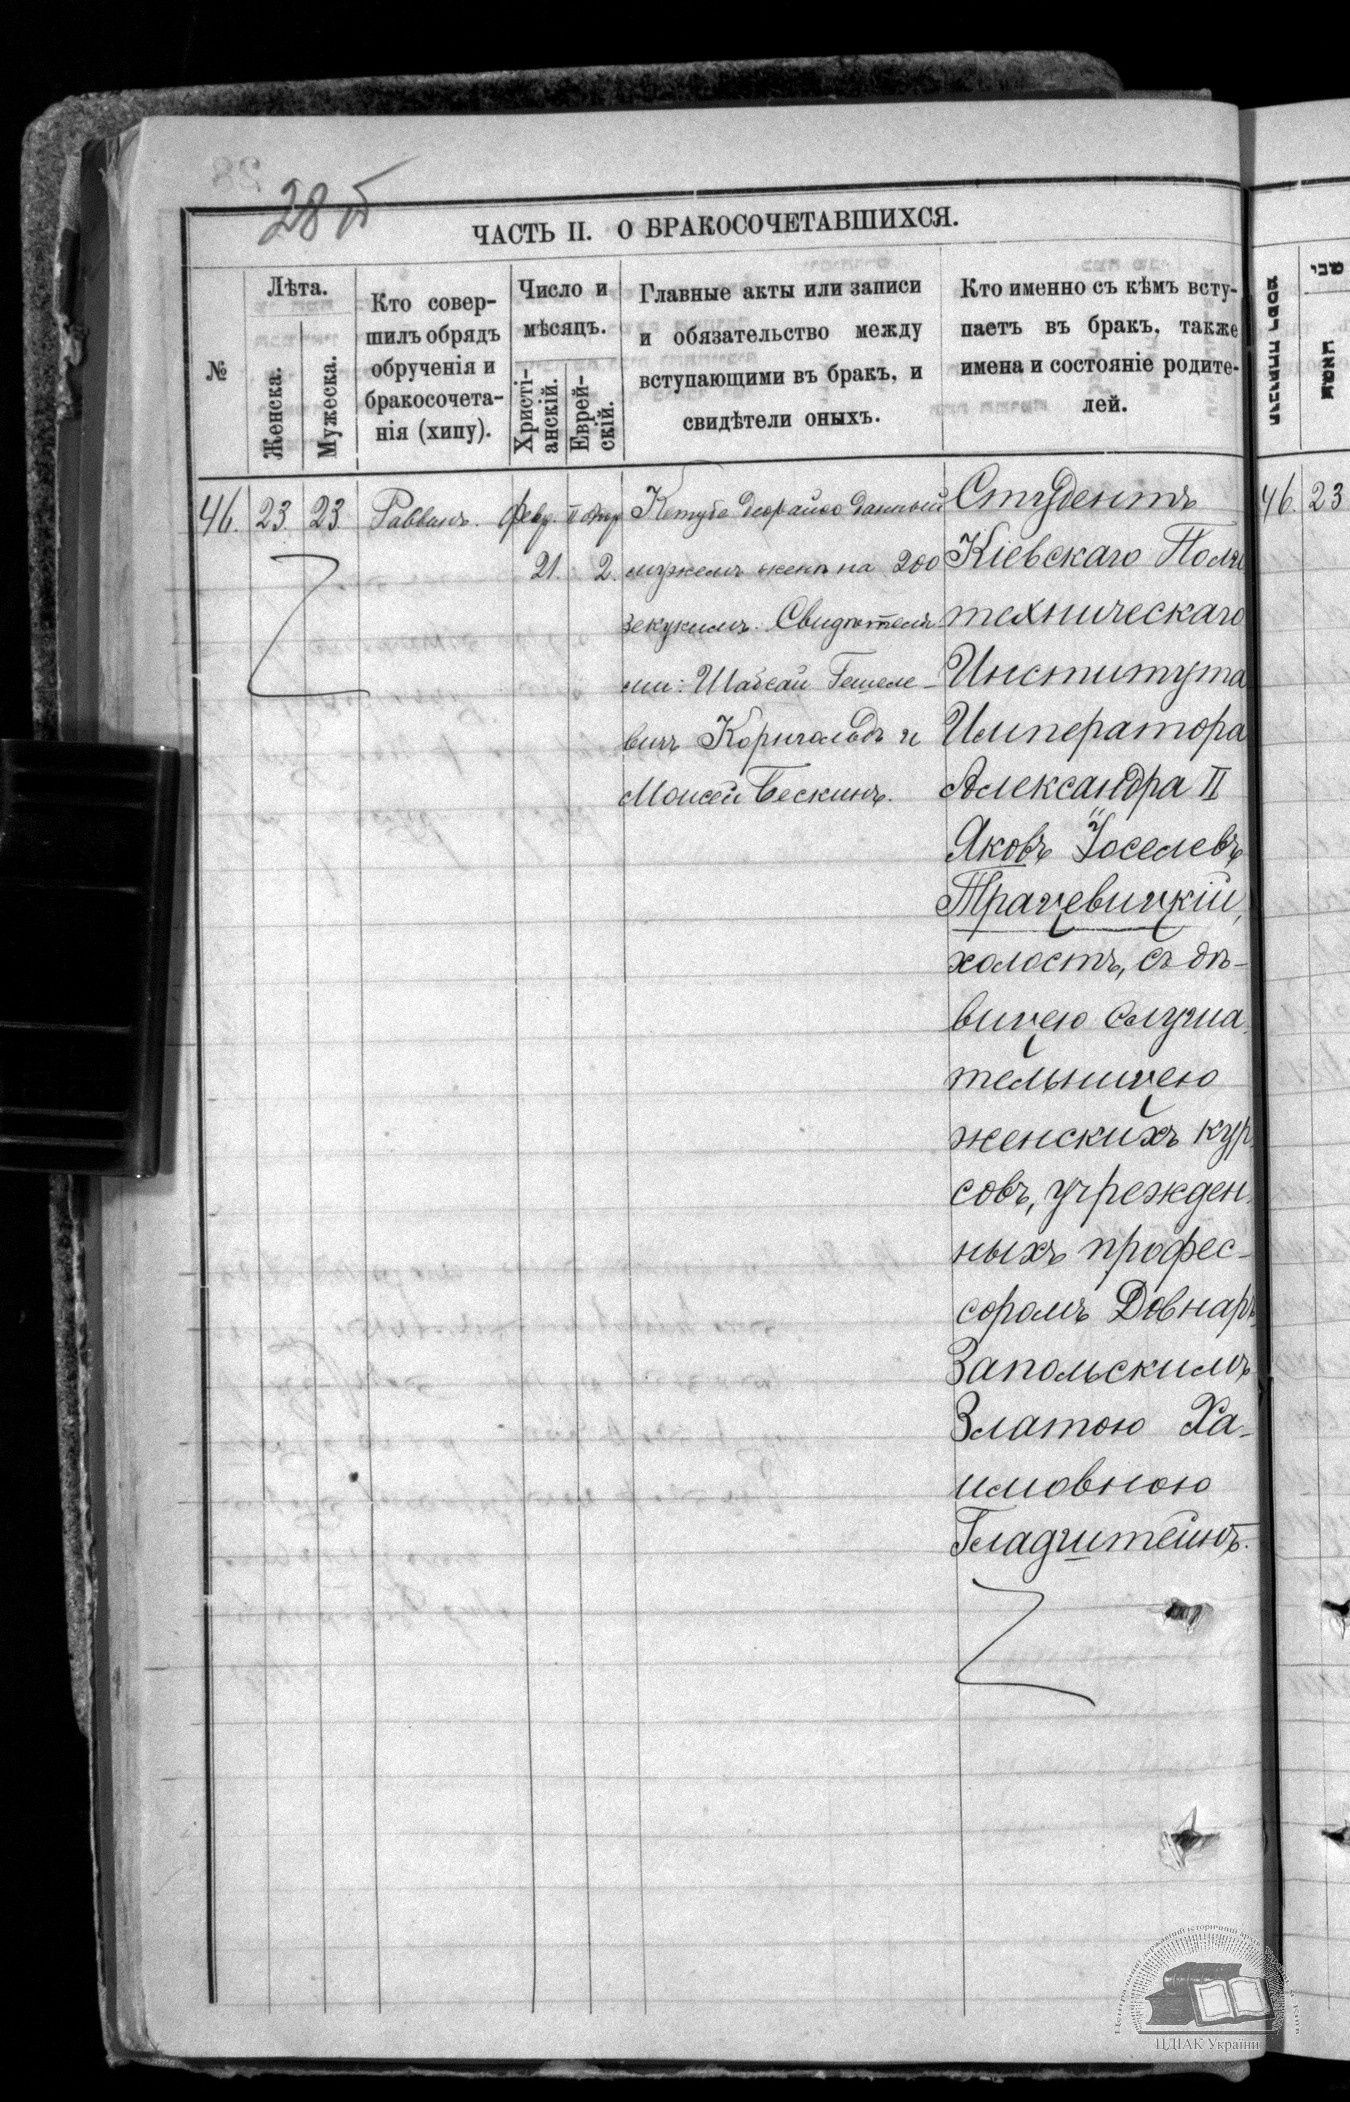 28 об
ЧАСТЬ II. О БРАКОСОЧЕТАВШИХСЯ.
№
Лѣта.
Женска.
Мужеска.
Кто совер-
шилъ обрядъ
обрученія и
бракосочета-
нія (хипу).
Число и
мѣсяцъ.
Христі-
анскій.
Еврей-
скій.
Главные акты или записи
и обязательство между
вступающими въ бракъ, и
свидѣтели оныхъ.
Кто именно съ кѣмъ всту-
паетъ въ бракъ, также
имена и состояніе родите-
лей.
46.
23
23
Раввинъ.
Февр.
21.
II Адар
2.
Кетуба Деорайсо данный
мужемъ женѣ на 200
зекукимъ. Свидѣтеля-
ми: Шабсай Гешеле-
вичъ Корнгольдъ и
Моисей Бескинъ.
Студентъ
Кіевскаго Поли
техническаго
Института
Императора
Александра II
Яковъ Іоселевъ
Трачевицкій,
холостъ, съ дѣ-
вицею слуша-
тельницею
женскихъ кур
совъ, учрежден-
ныхъ профес-
соромъ Довнаръ-
Запольскимъ
Златою Ха-
имовною
Гладштейнъ.
46.
23
ЦДІАК України